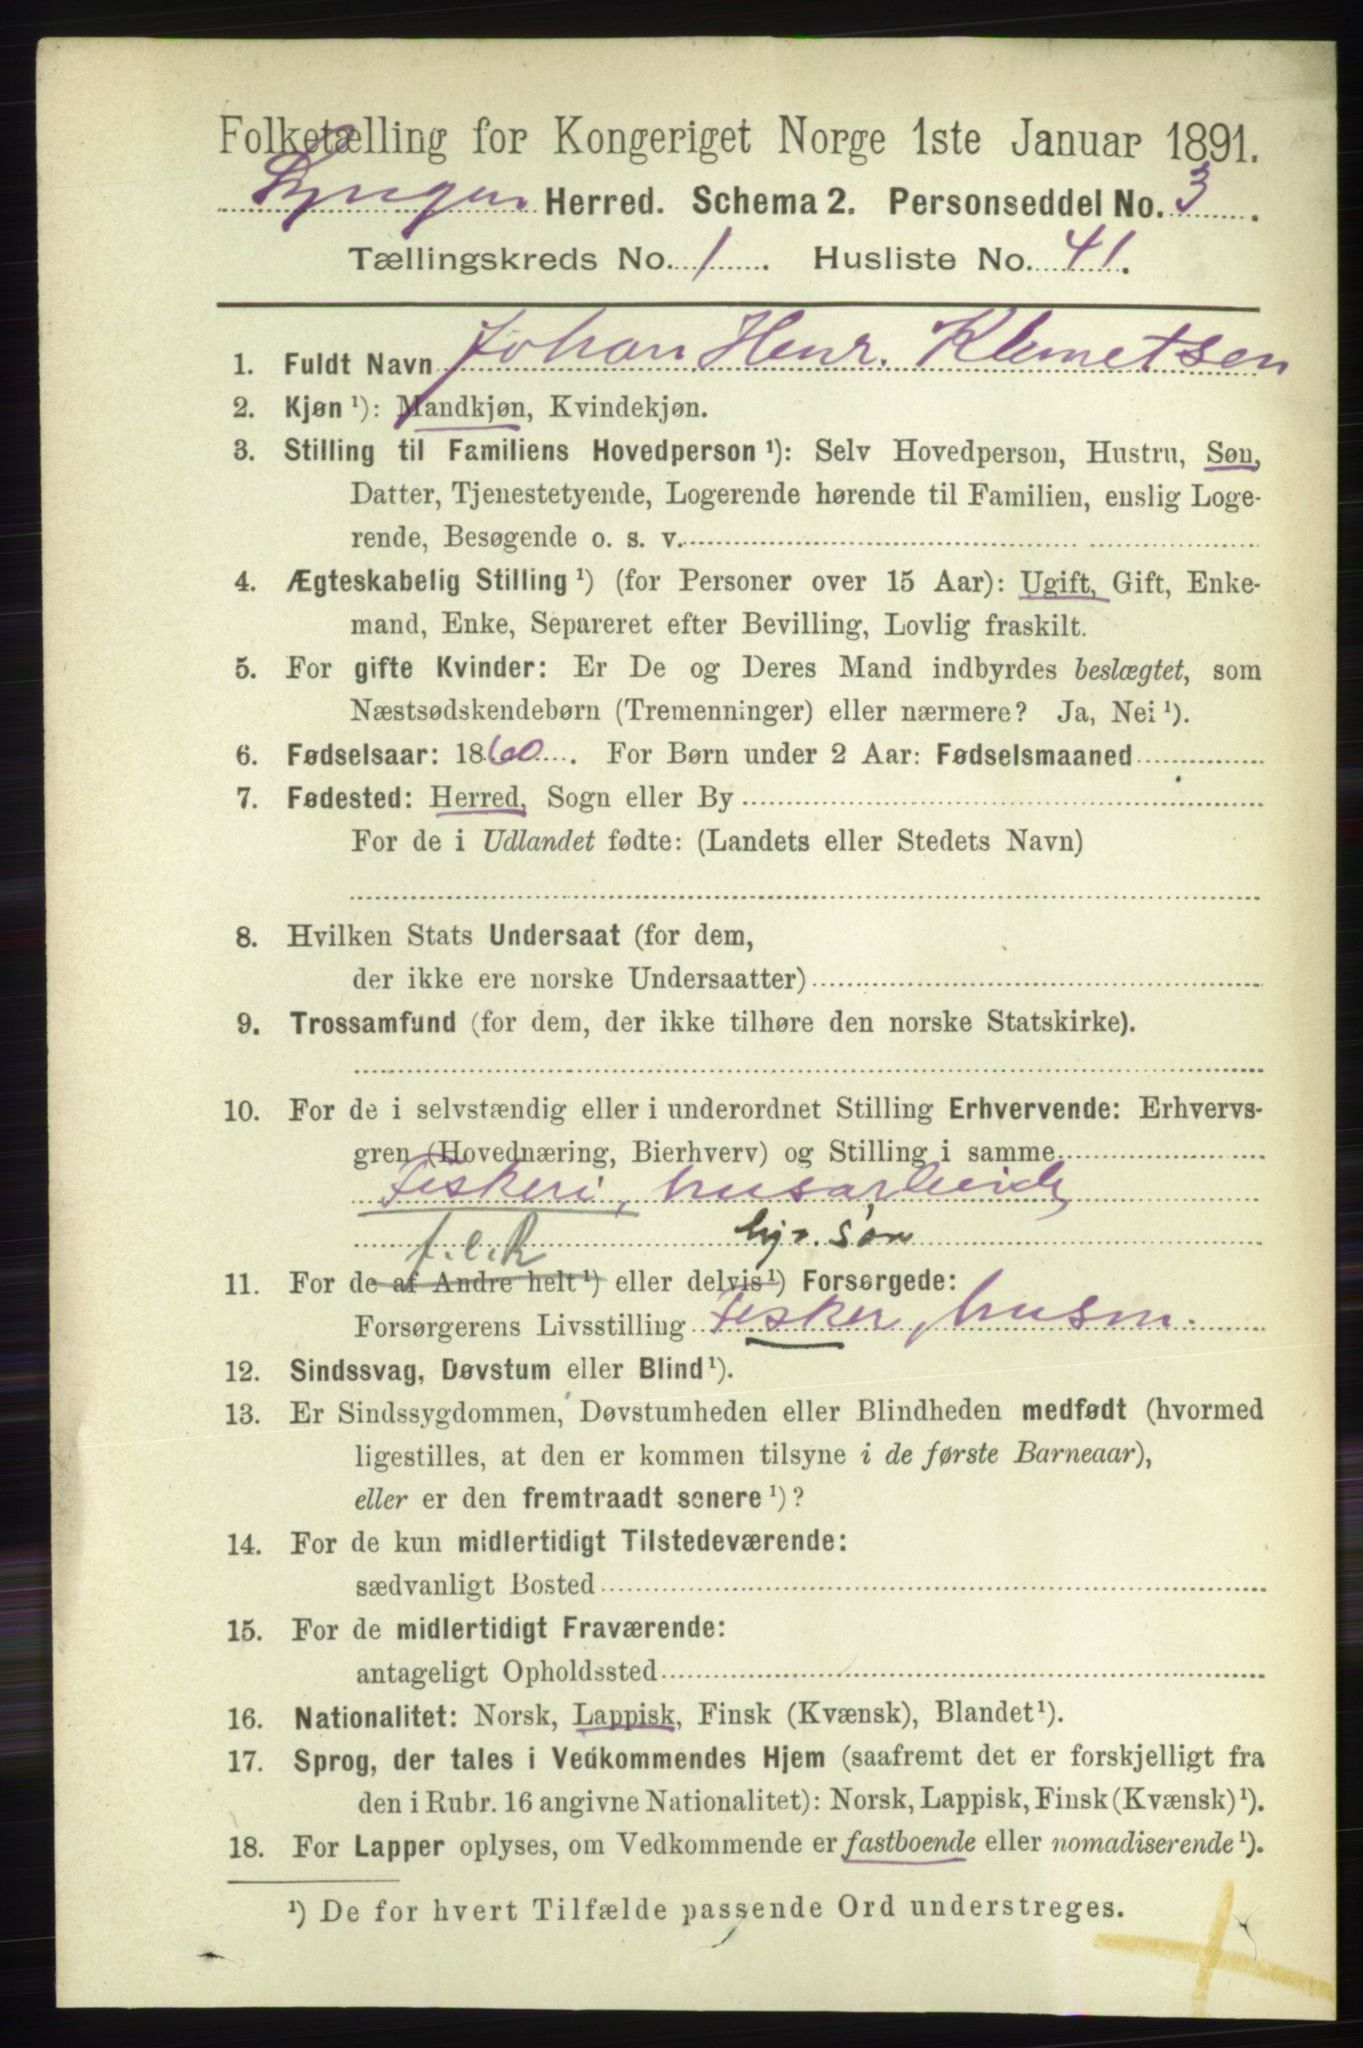 Folketælling for Kongeriget Norge 1ste Januar 1891.
Lyngen Herred. Schema 2. Personseddel No. 3.
Tællingskreds No. 1. Husliste No. 41.
1. Fuldt Navn Johan Henr. Klemetsen
2. Kjøn ¹): Mandkjøn, Kvindekjøn.
3. Stilling til Familiens Hovedperson ¹): Selv Hovedperson, Hustru, Søn,
Datter, Tjenestetyende, Logerende hørende til Familien, enslig Loge-
rende, Besøgende o. s. v.
4. Ægteskabelig Stilling ¹) (for Personer over 15 Aar): Ugift, Gift, Enke-
mand, Enke, Separeret efter Bevilling, Lovlig fraskilt.
5. For gifte Kvinder: Er De og Deres Mand indbyrdes beslægtet, som
Næstsødskendebørn (Tremenninger) eller nærmere? Ja, Nei ¹).
6. Fødselsaar: 1860. For Børn under 2 Aar: Fødselsmaaned
7. Fødested: Herred, Sogn eller By
For de i Udlandet fødte: (Landets eller Stedets Navn)
8. Hvilken Stats Undersaat (for dem,
der ikke ere norske Undersaatter)
9. Trossamfund (for dem, der ikke tilhøre den norske Statskirke).
10. For de i selvstændig eller i underordnet Stilling Erhvervende: Erhvervs-
gren (Hovednæring, Bierhverv) og Stilling i samme
Fiskeri, husarbeide
f.l.R hj. søn
11. For de af Andre helt ¹) eller delvis ¹) Forsørgede:
Forsørgerens Livsstilling Fisker, husm.
12. Sindssvag, Døvstum eller Blind ¹).
13. Er Sindssygdommen, Døvstumheden eller Blindheden medfødt (hvormed
ligestilles, at den er kommen tilsyne i de første Barneaar),
eller er den fremtraadt senere ¹)?
14. For de kun midlertidigt Tilstedeværende:
sædvanligt Bosted
15. For de midlertidigt Fraværende:
antageligt Opholdssted
16. Nationalitet: Norsk, Lappisk, Finsk (Kvænsk), Blandet ¹).
17. Sprog, der tales i Vedkommendes Hjem (saafremt det er forskjelligt fra
den i Rubr. 16 angivne Nationalitet): Norsk, Lappisk, Finsk (Kvænsk) ¹).
18. For Lapper oplyses, om Vedkommende er fastboende eller nomadiserende ¹).
¹) De for hvert Tilfælde passende Ord understreges.